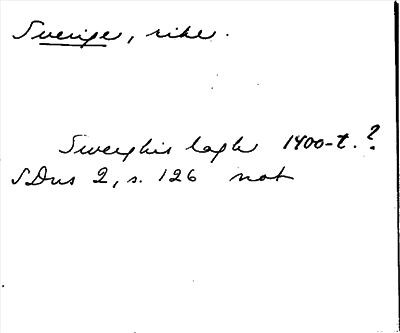 Sverige, rike.
Sweryhis laghe 1400-t.?
SDns 2, s. 126 not